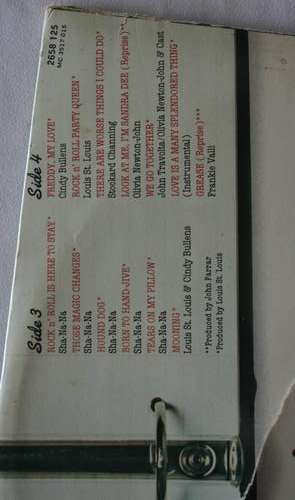 2658 125
MC 3517 015
Side 3
ROCK n' ROLL IS HERE TO STAY*
Sha-Na-Na
THOSE MAGIC CHANGES*
Sha-Na-Na
HOUND DOG*
Sha-Na-Na
BORN TO HAND-JIVE*
Sha-Na-Na
TEARS ON MY PILLOW*
Sha-Na-Na
MOONING*
Louis St. Louis & Cindy Bullens
**Produced by John Farrar
*Produced by Louis St. Louis
Side 4
FREDDY, MY LOVE*
Cindy Bullens
ROCK n' ROLL PARTY QUEEN*
Louis St. Louis
THERE ARE WORSE THINGS I COULD DO*
Stockard Channing
LOOK AT ME, I'M SANDRA DEE (Reprise)**
Olivia Newton-John
WE GO TOGETHER*
John Travolta/Olivia Newton-John & Cast
LOVE IS A MANY SPLENDORED THING*
(Instrumental)
GREASE (Reprise)***
Frankie Valli